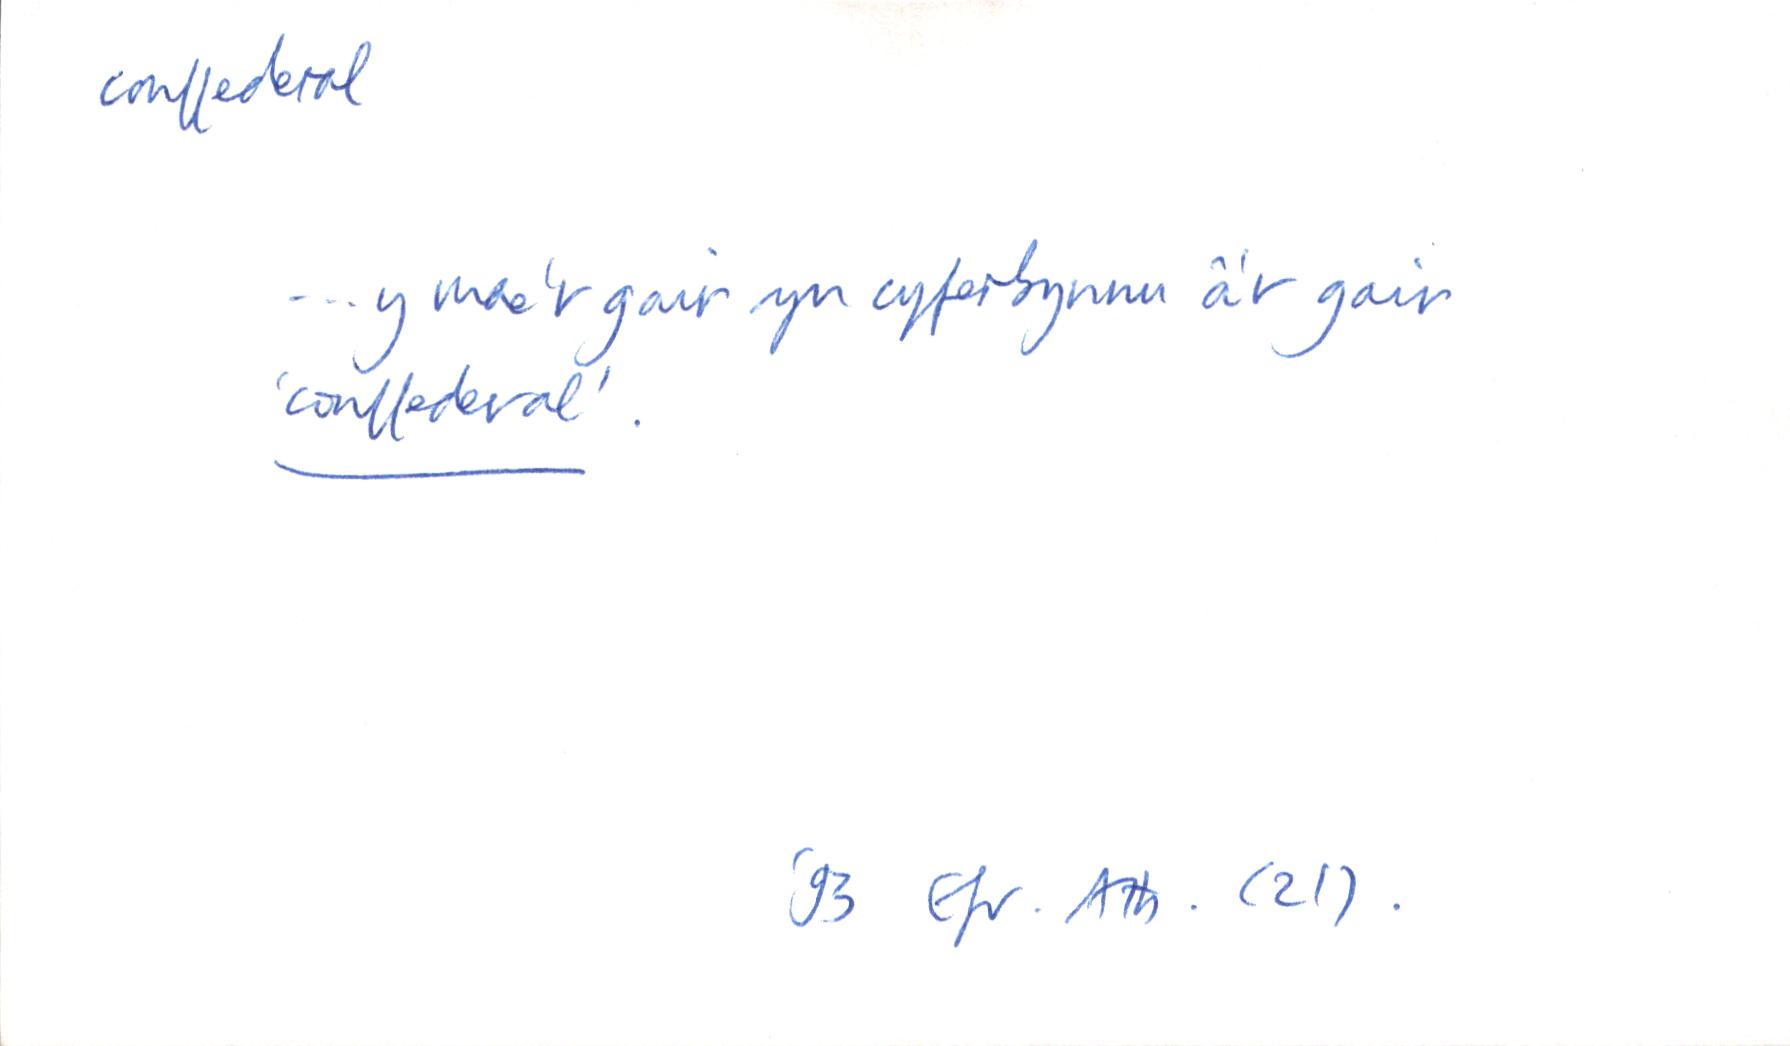 conffederal
---y mae'r gair yn cyferbynnu â'r gair
'conffederal'.
'93 Efr. Ath. (21).